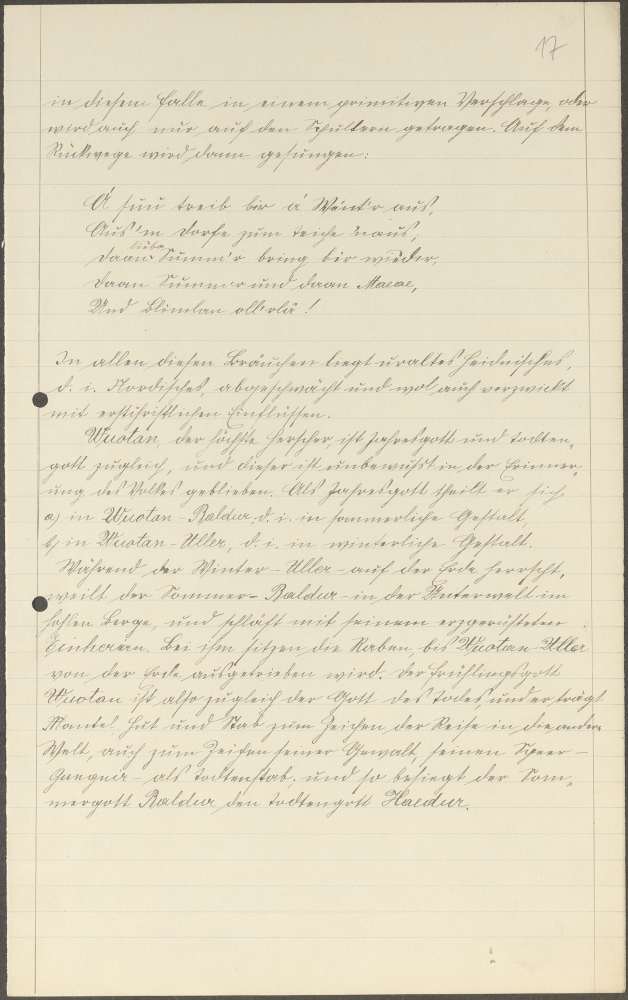 17
in diesem Falle in einem primitiven Verschlage, oder
wird auch nur auf den Schultern getragen. Auf dem
Rückwege wird dann gesungen:
A suu treib bir a Wint'r aus,
Aus'm Dorfe zum Teiche 'naus,
liebe
Daan Summ'r bring bir wieder,
Daan Summ'r und daan Maeae,
Und Blimlan ollerlä!
In allen diesen Bräuchen liegt uraltes Heidnisches,
d. i. Nordisches, abgeschwächt und wol auch verzwickt
mit christlichen Einflüssen.
Wuotan, der höchste Herscher, ist Jahresgott und Todten„
gott zugleich, und dieser ist unbewußt in der Erinner„
ung des Volkes geblieben. Als Jahresgott theilt er sich
a) in Wuotan-Baldur, d. i. in sommerliche Gestalt,
b) in Wuotan-Uller, d. i. in winterliche Gestalt.
Während der Winter-Uller-auf der Erde herrscht,
weilt der Sommer-Baldur-in der Unterwelt im
hohlen Berge, und schläft mit seinem erzgerüsteten
Einheran. Bei ihm sitzen die Raben, bis Wuotan-Uller
von der Erde ausgetrieben wird. Der Frühlingsgott
Wuotan ist also zugleich der Gott des Todes, und er trägt
Mantel Hut und Stab zum Zeichen der Reise in die andere
Welt, auch zum Zeichen seiner Gewalt, seinen Speer-
Gungnir-als Todtenstab. und so besiegt der Som„
mergott Baldur den Todtengott Haedur.